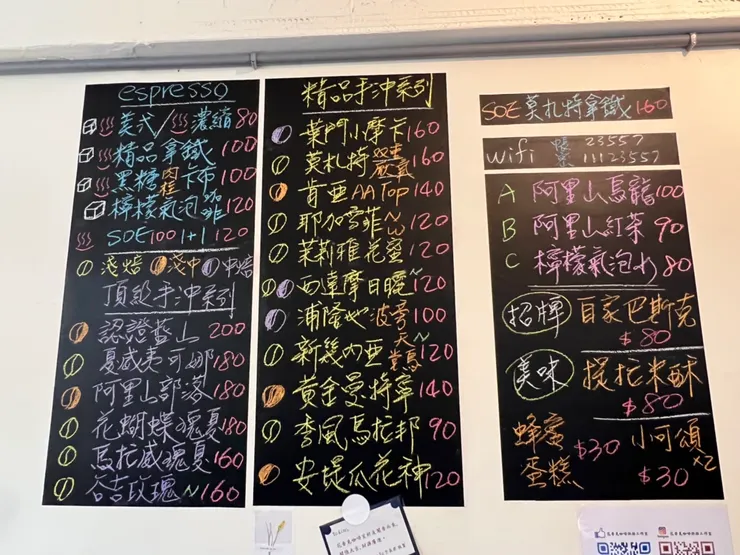 espresso
美式/濃縮 80
精品拿鐵 100
黑糖肉桂卡布 100
檸檬氣泡咖啡 120
SOE 100 1+1 120
淺焙 淺中 中焙
頂級手沖系列
認證藍山 200
夏威夷可娜 180
阿里山部落 180
花蝴蝶瑰夏 180
馬拉威瑰夏 160
谷吉玫瑰 N 160
精品手沖系列
葉門小摩卡 160
莫札特 160
肯亞AA Top 140
耶加雪菲 N W 120
茉莉雅花蜜 120
西達摩日曬 120
浦隆地波旁 100
新幾內亞天堂鳥 120
黃金曼特寧 140
季風馬拉邦 90
安堤瓜花神 120
SOE 莫札特拿鐵 160
wifi 帳 23557
密 11123557
A 阿里山烏龍 100
B 阿里山紅茶 90
C 檸檬氣泡水 80
招牌 自家巴斯克
$80
美味 提拉米酥
$80
蜂蜜蛋糕 $30
小可頌 x2
$30